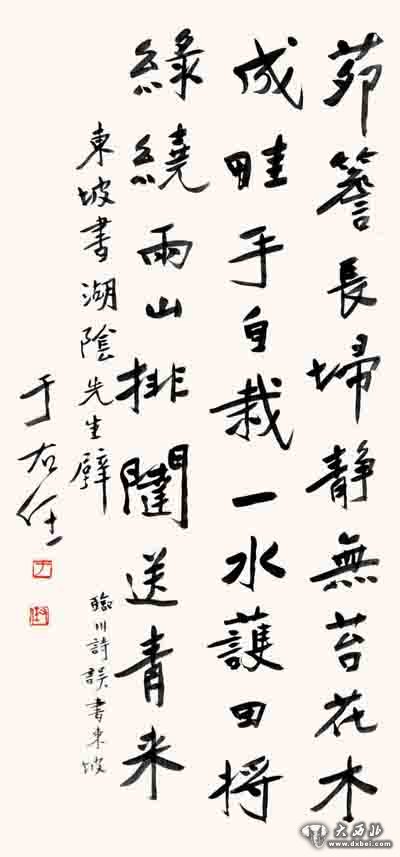 茆簷長埽静無苔花木
成畦手自栽一水護田將
綠繞兩山排闥送青来
東坡書湖陰先生壁
臨川詩誤書東坡
于右任
大西北
www.dxbei.com